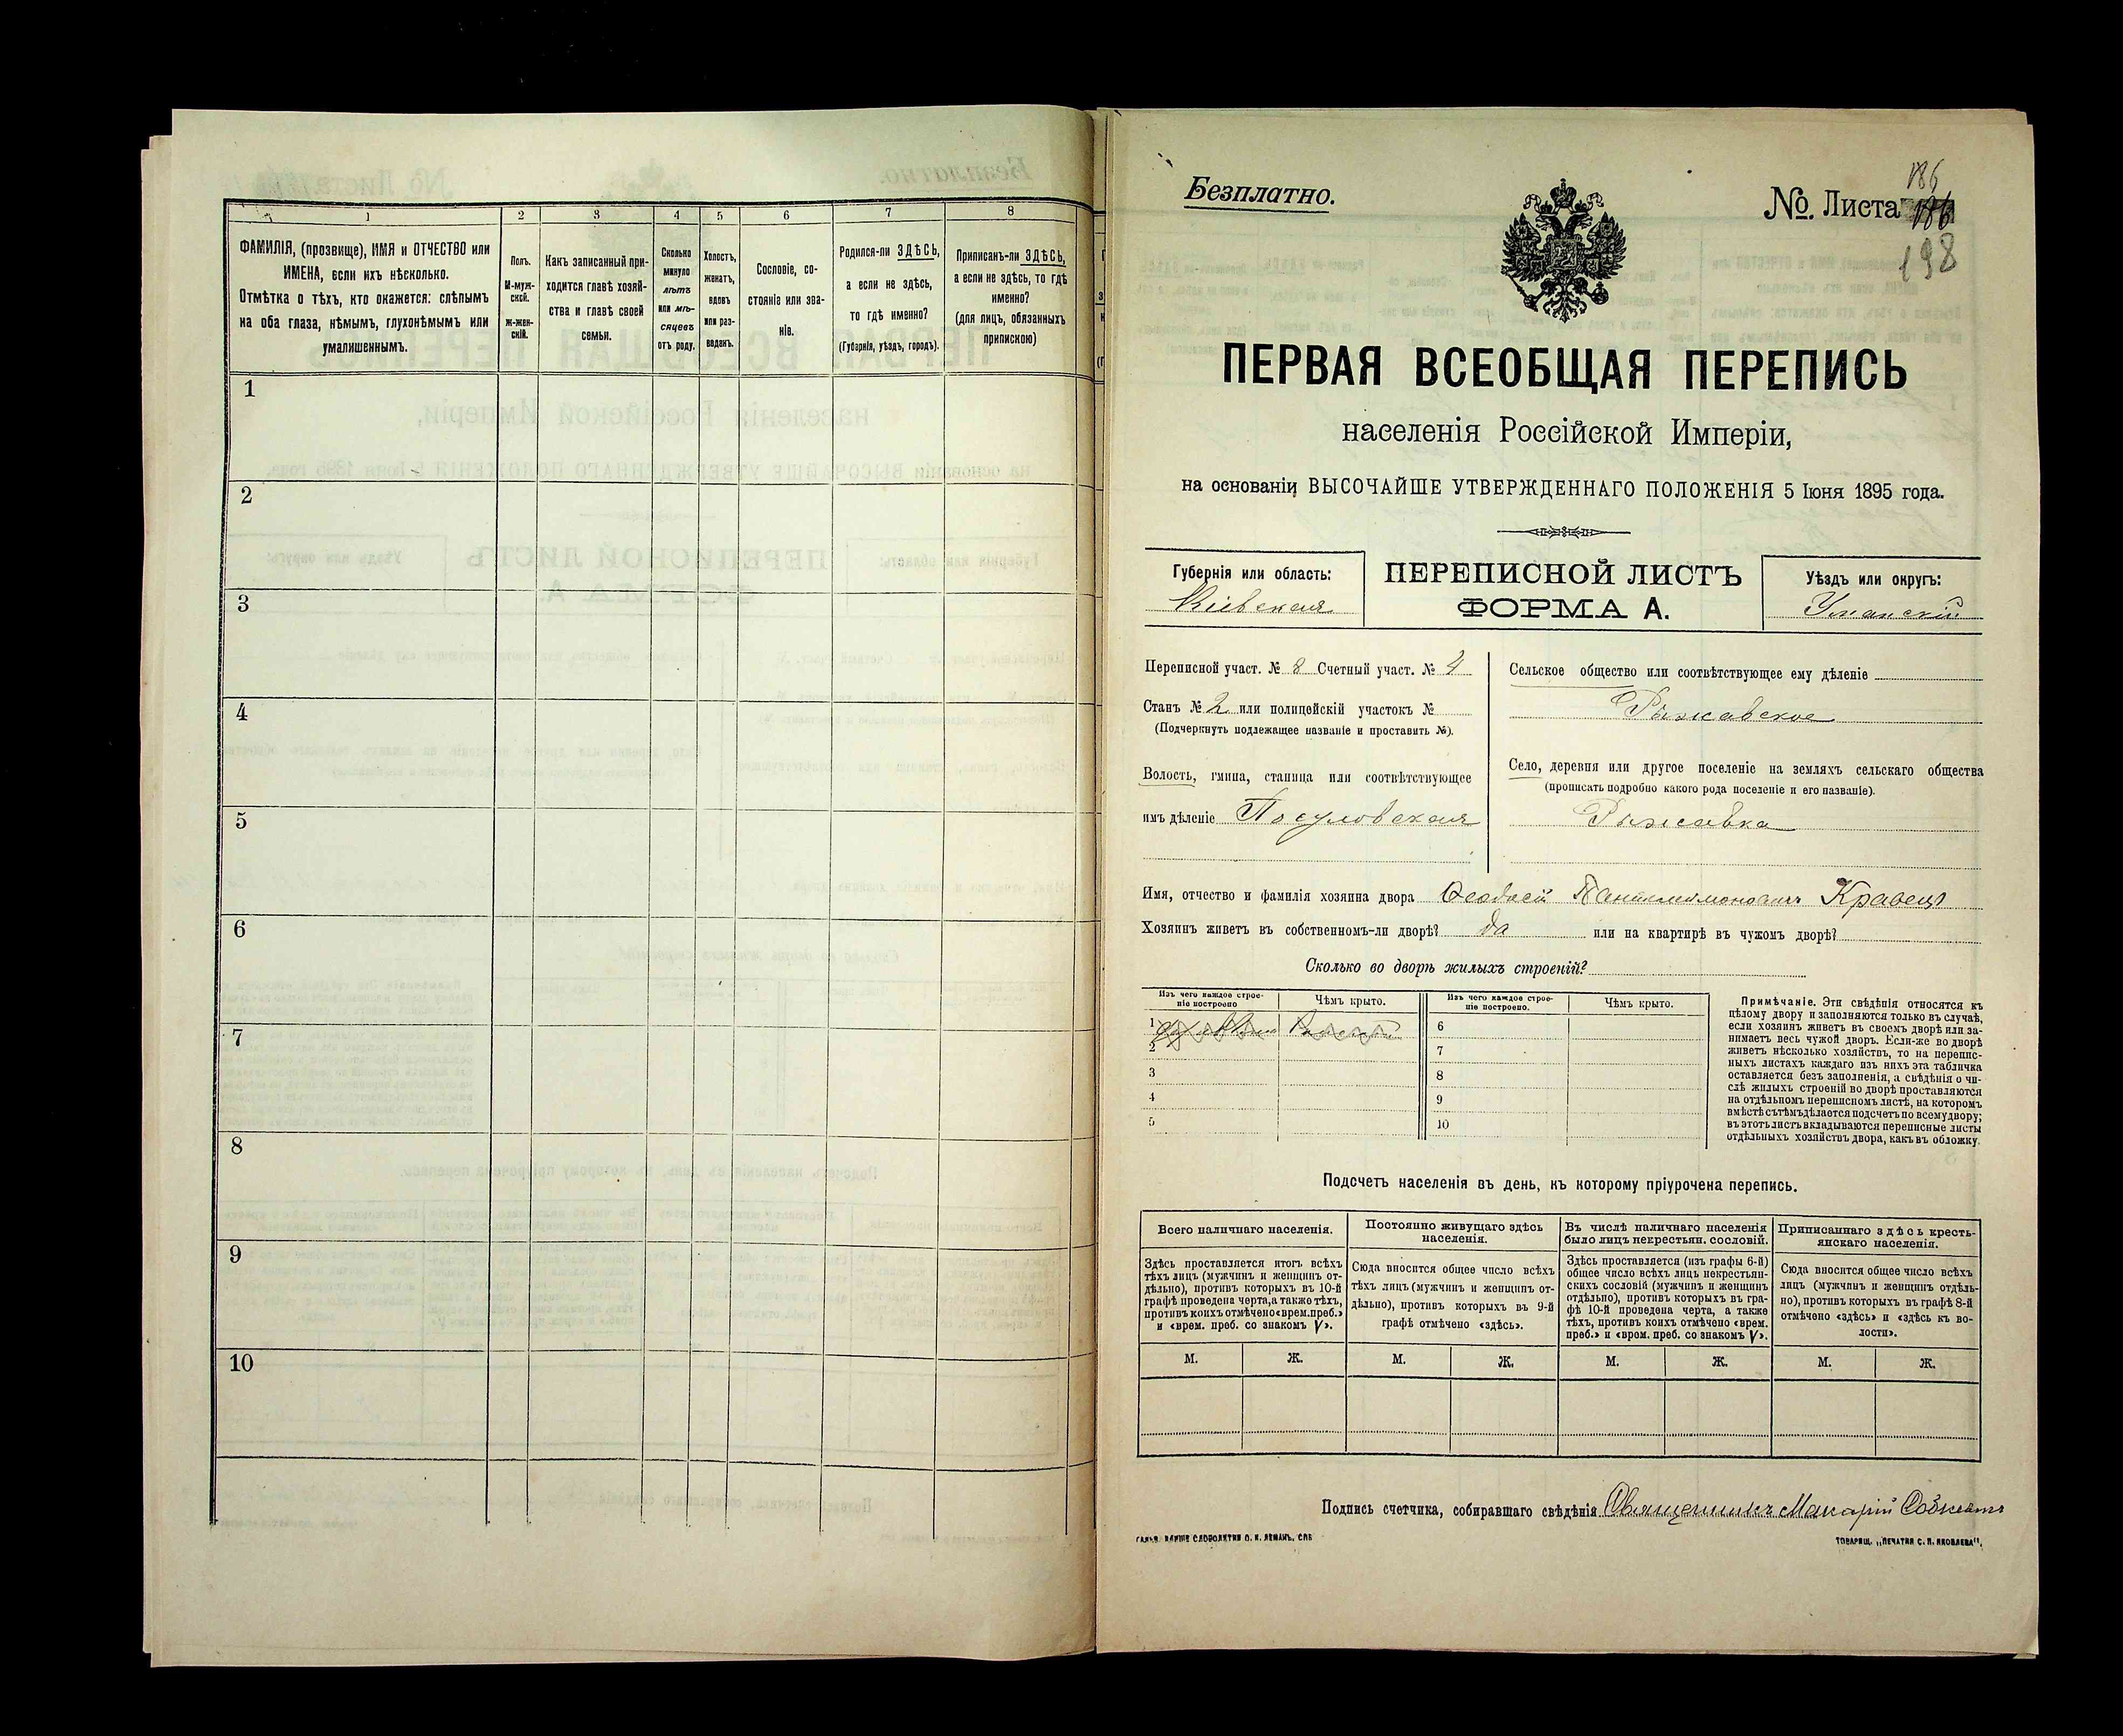 1
2
3
4
5
6
7
8
ФАМИЛІЯ, (прозвище), ИМЯ и ОТЧЕСТВО или
ИМЕНА, если ихъ нѣсколько.
Отмѣтка о тѣхъ, кто окажется: слѣпымъ
на оба глаза, нѣмымъ, глухонѣмымъ или
умалишеннымъ.
Полъ.
М-муж-
ской.
Ж-жен-
скій.
Какъ записанный при-
ходится главѣ хозяй-
ства и главѣ своей
семьи.
Сколько
минуло
лѣтъ
или мѣ-
сяцевъ
отъ роду.
Холостъ,
женатъ,
вдовъ
или раз-
веденъ.
Сословіе, со-
стояніе или зва-
ніе.
Родился-ли ЗДѢСЬ,
а если не здѣсь,
то гдѣ именно?
(Губернія, уѣздъ, городъ).
Приписанъ-ли ЗДѢСЬ,
а если не здѣсь, то гдѣ
именно?
(для лицъ, обязанныхъ
припискою)
1
2
3
4
5
6
7
8
9
10
Безплатно.
186
№. Листа 186
198
ПЕРВАЯ ВСЕОБЩАЯ ПЕРЕПИСЬ
населенія Россійской Имперіи,
на основаніи ВЫСОЧАЙШЕ УТВЕРЖДЕННАГО ПОЛОЖЕНІЯ 5 Іюня 1895 года.
Губернія или область:
Кіевская
ПЕРЕПИСНОЙ ЛИСТЪ
ФОРМА А.
Уѣздъ или округъ:
Уманскій
Переписной участ. № 8 Счетный участ. № 4
Станъ № 2 или полицейскій участокъ №
(Подчеркнуть подлежащее названіе и проставить №).
Волость, гмина, станица или соотвѣтствующее
имъ дѣленіе
Сельское общество или соотвѣтствующее ему дѣленіе
Рыжавское
Село, деревня или другое поселеніе на земляхъ сельскаго общества
(прописать подробно какого рода поселеніе и его названіе).
Рыжавка
Имя, отчество и фамилія хозяина двора Ѳеодосій Пантелимоновичъ Кравецъ
Хозяинъ живетъ въ собственномъ-ли дворѣ? да или на квартирѣ въ чужомъ дворѣ?
Сколько во дворѣ жилыхъ строеній?
Изъ чего каждое строе-
ніе построено
Чѣмъ крыто.
Изъ чего каждое строе-
ніе построено.
Чѣмъ крыто.
1
2
3
4
5
6
7
8
9
10
Примѣчаніе. Эти свѣдѣнія относятся къ
цѣлому двору и заполняются только въ случаѣ,
если хозяинъ живетъ въ своемъ дворѣ или за-
нимаетъ весь чужой дворъ. Если-же во дворѣ
живетъ нѣсколько хозяйствъ, то на перепис-
ныхъ листахъ каждаго изъ нихъ эта табличка
оставляется безъ заполненія, а свѣдѣнія о чи-
слѣ жилыхъ строеній во дворѣ проставляются
на отдѣльномъ переписномъ листѣ, на которомъ
вмѣстѣ съ тѣмъ дѣлается подсчетъ по всему двору;
въ этотъ листъ вкладываются переписные листы
отдѣльныхъ хозяйствъ двора, какъ въ обложку.
Подсчетъ населенія въ день, къ которому пріурочена перепись.
Всего наличнаго населенія.
Постоянно живущаго здѣсь
населенія.
Въ числѣ наличнаго населенія
было лицъ некрестьян. сословій.
Приписаннаго здѣсь кресть-
янскаго населенія.
Здѣсь проставляется итогъ всѣхъ
тѣхъ лицъ (мужчинъ и женщинъ от-
дѣльно), противъ которыхъ въ 10-й
графѣ проведена черта, а также тѣхъ,
противъ коихъ отмѣчено «врем. преб.»
и «врем. преб. со знакомъ V».
Сюда вносится общее число всѣхъ
тѣхъ лицъ (мужчинъ и женщинъ от-
дѣльно), противъ которыхъ въ 9-й
графѣ отмѣчено «здѣсь».
Здѣсь проставляется (изъ графы 6-й)
общее число всѣхъ лицъ некрестьян-
скихъ сословій (мужчинъ и женщинъ
отдѣльно), противъ которыхъ въ гра-
фѣ 10-й проведена черта, а также
тѣхъ, противъ коихъ отмѣчено «врем.
преб.» и «врем. преб. со знакомъ V».
Сюда вносится общее число всѣхъ
лицъ (мужчинъ и женщинъ отдѣль-
но), противъ которыхъ въ графѣ 8-й
отмѣчено «здѣсь» и «здѣсь къ во-
лости».
М.
Ж.
М.
Ж.
М.
Ж.
М.
Ж.
Подпись счетчика, собиравшаго свѣдѣнія Священникъ Макарій
ТОВАРИЩ. „ПЕЧАТНЯ С. П. ЯКОВЛЕВА“.